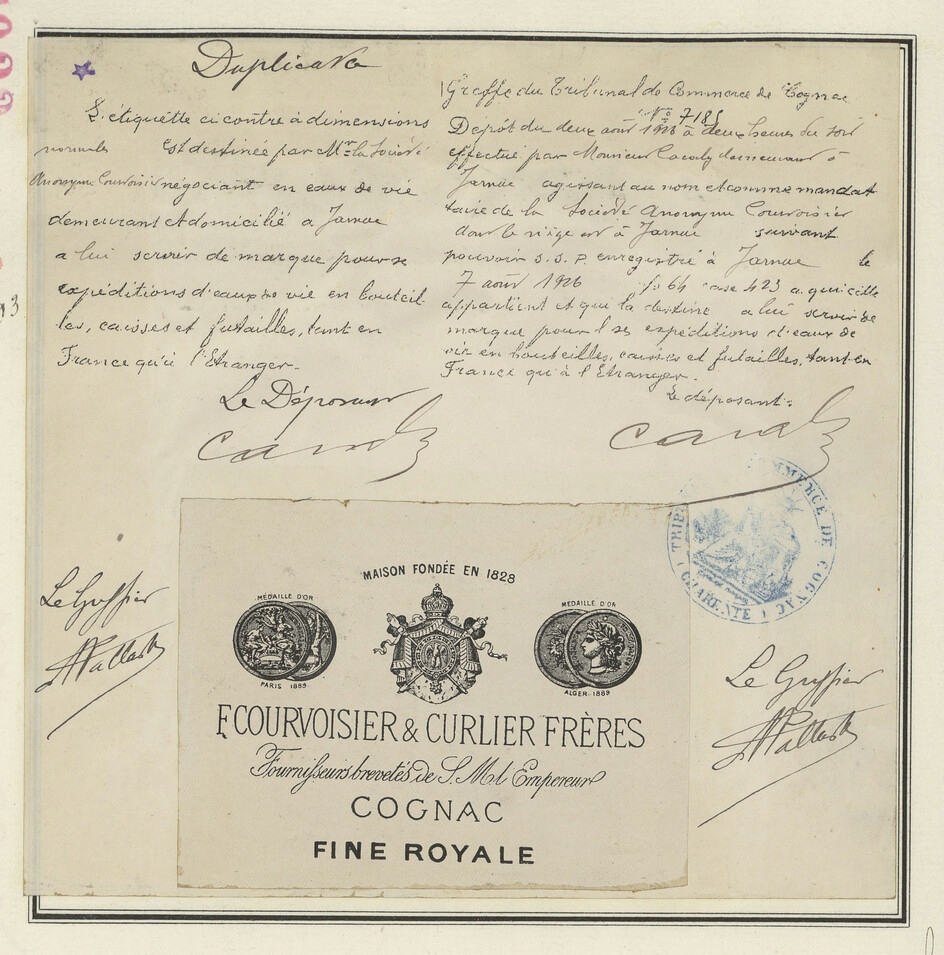 Duplicata
L'étiquette ci contre à dimensions
normales est destinée par Mr la Société
Anonyme Courvoisier négociant en eaux de vie
demeurant et domicilié a Jarnac
a lui servir de marque pour se
expéditions d'eaux de vie en bouteil
les, caisses et futailles, tant en
France qu'à l'Etranger.
Le Déposant
Greffe du Tribunal de Commerce de Cognac
No 7185
Dépôt du deux août 1926 à deux heures du soir
effectué par Monsieur demeurant à
Jarnac agissant au nom et comme mandat
taire de la Société Anonyme Courvoisier
dont le siège est à Jarnac suivant
pouvoir s.s.p. enregistré à Jarnac le
7 août 1926 fo 64 case 423 a qui elle
appartient et qui la destine a lui servir de
marque pour ses expéditions d'eaux de
vie en bouteilles, caisses et futailles, tant en
France qu'à l'Etranger.
Le déposant:
TRIBUNAL DE COMMERCE DE COGNAC
(CHARENTE)
Le Greffier
MAISON FONDÉE EN 1828
MEDAILLE D'OR
PARIS 1889
MEDAILLE D'OR
ALGER 1889
F. COURVOISIER & CURLIER FRÈRES
Fournisseurs brevetés de S. M. l'Empereur
COGNAC
FINE ROYALE
Le Greffier